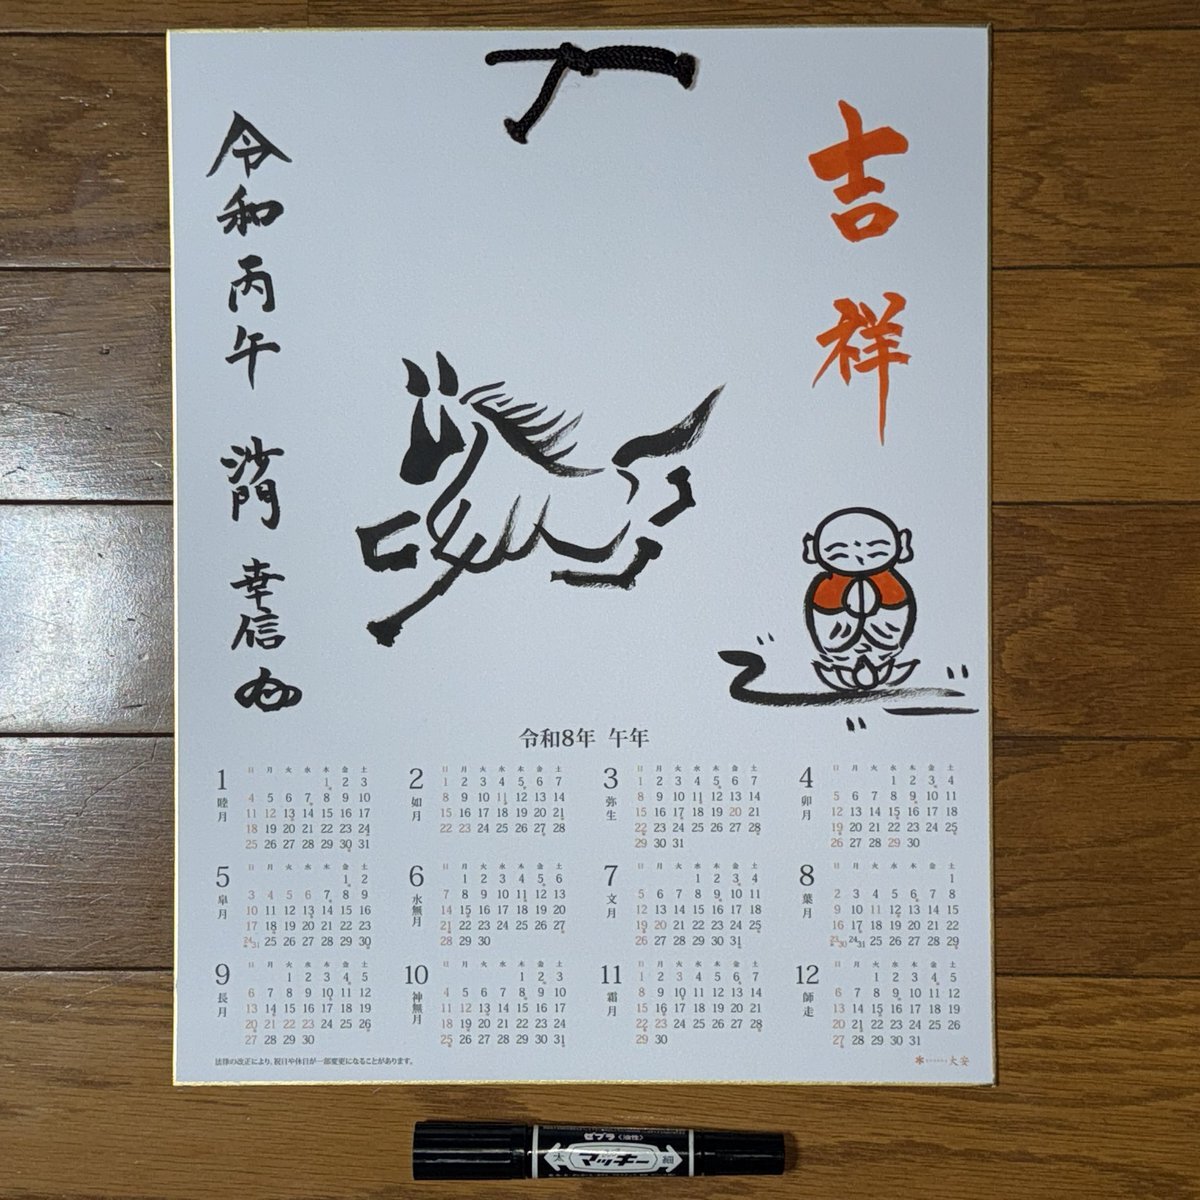 吉祥
令和丙午 沙門 幸信
令和8年 午年
1 睦月
日 月 火 水 木 金 土
1 2 3
4 5 6 7 8 9 10
11 12 13 14 15 16 17
18 19 20 21 22 23 24
25 26 27 28 29 30 31
2 如月
日 月 火 水 木 金 土
1 2 3 4 5 6 7
8 9 10 11 12 13 14
15 16 17 18 19 20 21
22 23 24 25 26 27 28
3 弥生
日 月 火 水 木 金 土
1 2 3 4 5 6 7
8 9 10 11 12 13 14
15 16 17 18 19 20 21
22 23 24 25 26 27 28
29 30 31
4 卯月
日 月 火 水 木 金 土
1 2 3 4
5 6 7 8 9 10 11
12 13 14 15 16 17 18
19 20 21 22 23 24 25
26 27 28 29 30
5 皐月
日 月 火 水 木 金 土
1 2
3 4 5 6 7 8 9
10 11 12 13 14 15 16
17 18 19 20 21 22 23
24/31 25 26 27 28 29 30
6 水無月
日 月 火 水 木 金 土
1 2 3 4 5 6
7 8 9 10 11 12 13
14 15 16 17 18 19 20
21 22 23 24 25 26 27
28 29 30
7 文月
日 月 火 水 木 金 土
1 2 3 4
5 6 7 8 9 10 11
12 13 14 15 16 17 18
19 20 21 22 23 24 25
26 27 28 29 30 31
8 葉月
日 月 火 水 木 金 土
1
2 3 4 5 6 7 8
9 10 11 12 13 14 15
16 17 18 19 20 21 22
23/30 24/31 25 26 27 28 29
9 長月
日 月 火 水 木 金 土
1 2 3 4 5
6 7 8 9 10 11 12
13 14 15 16 17 18 19
20 21 22 23 24 25 26
27 28 29 30
10 神無月
日 月 火 水 木 金 土
1 2 3
4 5 6 7 8 9 10
11 12 13 14 15 16 17
18 19 20 21 22 23 24
25 26 27 28 29 30 31
11 霜月
日 月 火 水 木 金 土
1 2 3 4 5 6 7
8 9 10 11 12 13 14
15 16 17 18 19 20 21
22 23 24 25 26 27 28
29 30
12 師走
日 月 火 水 木 金 土
1 2 3 4 5
6 7 8 9 10 11 12
13 14 15 16 17 18 19
20 21 22 23 24 25 26
27 28 29 30 31
法律の改正により、祝日や休日が一部変更になることがあります。
＊……大安
ゼブラ〈油性〉
太 マッキー 細